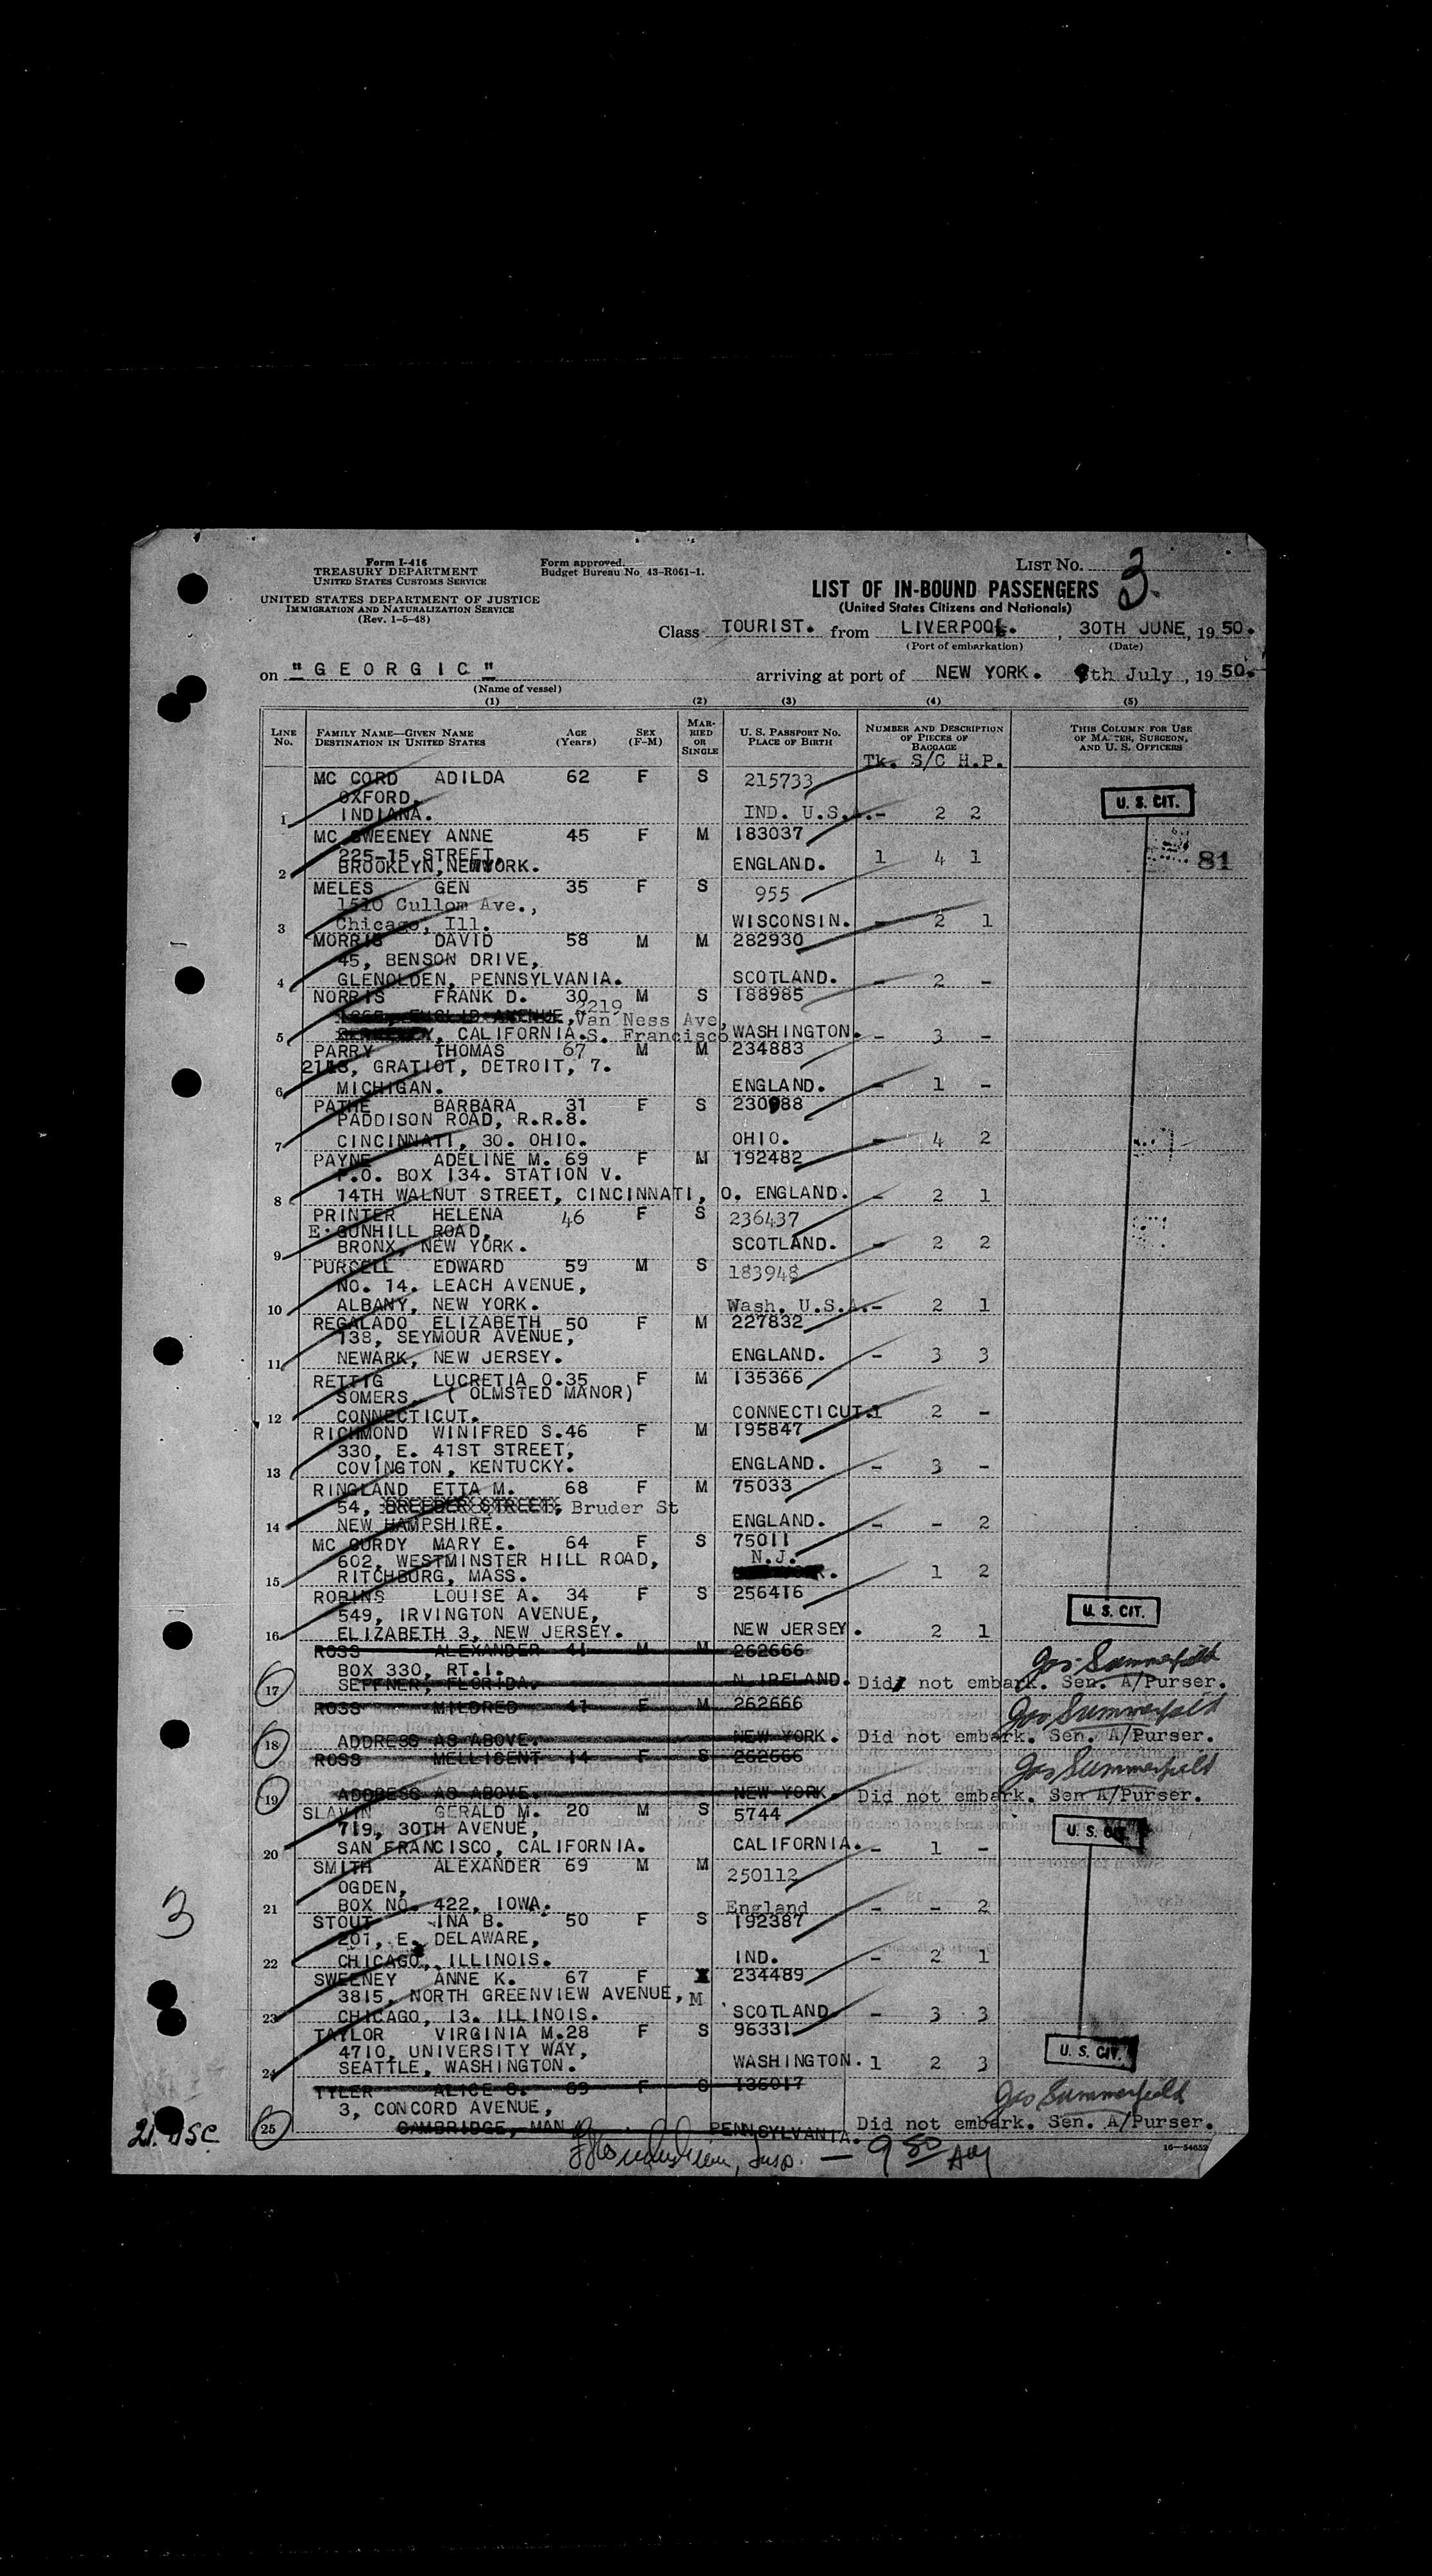 Form I-416
TREASURY DEPARTMENT
UNITED STATES CUSTOMS SERVICE
UNITED STATES DEPARTMENT OF JUSTICE
IMMIGRATION AND NATURALIZATION SERVICE
(Rev. 1-5-48)
Form approved.
Budget Bureau No. 43-R061-1.
LIST NO. 3
LIST OF IN-BOUND PASSENGERS
(United States Citizens and Nationals)
Class TOURIST. from LIVERPOOL. , 30TH JUNE, 1950.
(Port of embarkation) (Date)
on "GEORGIC" arriving at port of NEW YORK. th July, 1950.
(Name of vessel)
(1) (2) (3) (4) (5)
LINE NO. FAMILY NAME—GIVEN NAME DESTINATION IN UNITED STATES AGE (Years) SEX (F-M) MARRIED OR SINGLE U. S. PASSPORT NO. PLACE OF BIRTH NUMBER AND DESCRIPTION OF PIECES OF BAGGAGE THIS COLUMN FOR USE OF MASTER, SURGEON, AND U. S. OFFICERS
Tk. S/C H.P.
MC CORD ADILDA 62 F S 215733
OXFORD,
1 INDIANA. IND. U.S.A. - 2 2 U. S. CIT.
MC SWEENEY ANNE 45 F M 183037
225-15 STREET.
2 BROOKLYN, NEWYORK. ENGLAND. 1 4 1 81
MELES GEN 35 F S 955
1510 Cullom Ave.,
3 Chicago, Ill. WISCONSIN. - 2 1
MORRIS DAVID 58 M M 282930
45, BENSON DRIVE,
4 GLENOLDEN, PENNSYLVANIA. SCOTLAND. - 2 -
NORRIS FRANK D. 30 M S 188985
1865, EUCLID AVENUE, 2219 Van Ness Ave,
5 BERKELEY, CALIFORNIA. S. Francisco WASHINGTON. - 3 -
PARRY THOMAS 67 M M 234883
GRATIOT, DETROIT, 7.
6 MICHIGAN. ENGLAND. - 1 -
PATHE BARBARA 31 F S
PADDISON ROAD, R.R.8.
7 CINCINNATI, 30. OHIO. OHIO. - 4 2
PAYNE ADELINE M. 69 F M 192482
P.O. BOX 134. STATION V.
8 14TH WALNUT STREET, CINCINNATI, O. ENGLAND. - 2 1
PRINTER HELENA 46 F S 236437
E. GUNHILL ROAD,
9 BRONX, NEW YORK. SCOTLAND. - 2 2
PURCELL EDWARD 59 M S 183948
NO. 14. LEACH AVENUE,
10 ALBANY, NEW YORK. Wash. U.S.A. - 2 1
REGALADO ELIZABETH 50 F M 227832
138, SEYMOUR AVENUE,
11 NEWARK, NEW JERSEY. ENGLAND. - 3 3
RETTIG LUCRETIA O. 35 F M 135366
SOMERS, ( OLMSTED MANOR)
12 CONNECTICUT. CONNECTICUT. 1 2 -
RICHMOND WINIFRED S. 46 F M 195847
330, E. 41ST STREET,
13 COVINGTON, KENTUCKY. ENGLAND. - 3 -
RINGLAND ETTA M. 68 F M 75033
54, BREEDER STREET, Bruder St
14 NEW HAMPSHIRE. ENGLAND. - - 2
MC CURDY MARY E. 64 F S 75011
602, WESTMINSTER HILL ROAD, N.J.
15 RITCHBURG, MASS. 1 2
ROBINS LOUISE A. 34 F S 256416 U. S. CIT.
549, IRVINGTON AVENUE,
16 ELIZABETH 3, NEW JERSEY. NEW JERSEY. 2 1
ROSS ALEXANDER 41 M M 262666 Geo. Summerfield
BOX 330, RT.1.
17 SEFFNER, FLORIDA. N. IRELAND. Did not embark. Sen. A/Purser.
ROSS MILDRED 41 F M 262666 Geo Summerfield
18 ADDRESS AS ABOVE. NEW YORK. Did not embark. Sen. A/Purser.
ROSS MELLISENT 14 F S 262666 Geo Summerfield
19 ADDRESS AS ABOVE. NEW YORK. Did not embark. Sen A/Purser.
SLAVIN GERALD M. 20 M S 5744
719, 30TH AVENUE, U. S. CIT.
20 SAN FRANCISCO, CALIFORNIA. CALIFORNIA. - 1 -
SMITH ALEXANDER 69 M M 250112
OGDEN,
21 BOX NO. 422, IOWA. England - - 2
STOUT INA B. 50 F S 192387
201, E. DELAWARE,
22 CHICAGO, ILLINOIS. IND. - 2 1
SWEENEY ANNE K. 67 F 234489
3815, NORTH GREENVIEW AVENUE, M
23 CHICAGO, 13. ILLINOIS. SCOTLAND. - 3 3
TAYLOR VIRGINIA M. 28 F S 96331
4710, UNIVERSITY WAY,
24 SEATTLE, WASHINGTON. WASHINGTON. 1 2 3 U. S. CIT.
TYLER ALICE C. 69 F S 136017 Geo Summerfield
3, CONCORD AVENUE,
25 CAMBRIDGE, MAN PENNSYLVANIA. Did not embark. Sen. A/Purser.
3
21 USC
Insp. — 9 50 AM
16—54652